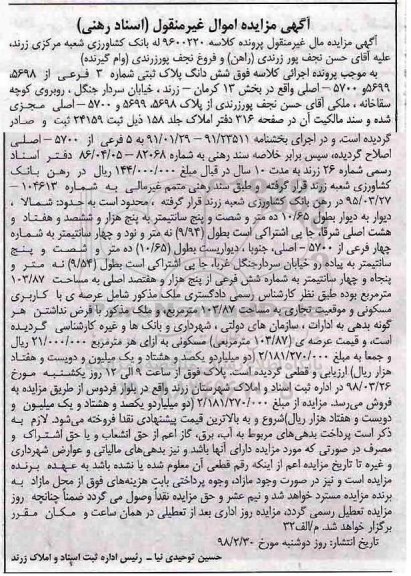 آگهی مزایده اموال غیرمنقول (اسناد رهنی)
آگهی مزایده مال غیرمنقول پرونده کلاسه ۹۶۰۰۲۲۰ له بانک کشاورزی شعبه مرکزی زرند،
علیه آقای حسن نجف پور زرندی (راهن) و فروغ نجف پورزرندی (وام گیرنده)
به موجب پرونده اجرائی کلاسه فوق شش دانگ پلاک ثبتی شماره ۳ فرعی از ۵۶۹۸،
۵۶۹۹و ۵۷۰۰ - اصلی واقع در بخش ۱۳ کرمان - زرند، خیابان سردار جنگل ، روبروی کوچه
سقاخانه ، ملکی آقای حسن نجف پورزرندی از پلاک ۵۶۹۸، ۵۶۹۹ و ۵۷۰۰- اصلی مجزی
شده و سند مالکیت آن در صفحه ۳۱۶ دفتر املاک جلد ۱۵۸ ذیل ثبت ۲۴۱۵۹ ثبت و صادر
گردیده است. و در اجرای بخشنامه ۹۱/۲۳۵۱۱ - ۹۱/۰۱/۲۹ به ۵ فرعی از ۵۷۰۰- اصلی
اصلاح گردیده، سپس برابر خلاصه سند رهنی به شماره ۸۲۰۶۸ - ۸۶/۰۴/۰۵ دفتر اسناد
رسمی شماره ۲۶ زرند به مدت ۱۰ سال در قبال مبلغ ۱۴۴/۰۰۰/۰۰۰ ریال در رهن بانک
کشاورزی شعبه زرند قرار گرفته و طبق سند رهنی متمم غیرمالی به شماره ۱۰۴۶۱۳ -
۹۵/۰۳/۲۷ در رهن بانک کشاورزی شعبه زرند قرار گرفته ، محدود است به حدود: شمالا ،
دیوار به دیوار بطول ۱۰/۶۵ ده متر و شصت و پنج سانتیمتر به پنج هزار و ششصد و هفتاد و
هشت اصلی شرقا، جا پی اشتراکی است بطول (۹/۹۴) نه متر و نود و چهار سانتیمتر به شماره
چهار فرعی از ۵۷۰۰ - اصلی، جنوبا ، دیواریست بطول (۱۰/۶۵) ده متر و شصت و پنج
سانتیمتر به پیاده رو خیابان سردارجنگل غربا، جا پی اشتراکی است بطول (۹/۵۴) نه متر و
پنجاه و چهار سانتیمتر به شماره شش فرعی از پنج هزار و هفتصد اصلی به مساحت ۱۰۳/۸۷
مترمربع بوده طبق نظر کارشناس رسمی دادگستری ملک مذکور شامل عرصه ی با کاربری
مسکونی و موقعیت تجاری به مساحت ۱۰۳/۸۷ مترمربع، و ملک مذکور با فرض نداشتن هر
گونه بدهی به ادارات ، سازمان های دولتی ، شهرداری و بانک ها و غیره کارشناسی گردیده
است، و قیمت عرصه ی (۱۰۳/۸۷ مترمربعی) مسکونی به ازای هر مترمربع ۲۱/۰۰۰/۰۰۰ ریال
و جمعا به مبلغ ۲/۱۸۱/۲۷۰/۰۰۰ (دو میلیاردو یکصد و هشتاد و یک میلیون و دویست و هفتاد
هزار ریال) ارزیابی و قطعی گردیده است. پلاک فوق از ساعت ۹ الی ۱۲ روز یکشنبه مورخ
۹۸/۰۳/۲۶ در اداره ثبت اسناد و املاک شهرستان زرند واقع در بلوار فردوس از طریق مزایده به
فروش می‌رسد. مزایده از مبلغ ۲/۱۸۱/۲۷۰/۰۰۰ (دو میلیاردو یکصد و هشتاد و یک میلیون و
دویست و هفتاد هزار ریال)شروع و به بالاترین قیمت پیشنهادی نقدا فروخته می‌شود. لازم به
ذکر است پرداخت بدهی‌های مربوط به آب، برق، گاز اعم از حق انشعاب و یا حق اشتراک و
مصرف در صورتی که مورد مزایده دارای آنها باشد و نیز بدهی‌های مالیاتی و عوارض شهرداری
و غیره تا تاریخ مزایده اعم از اینکه رقم قطعی آن معلوم شده یا نشده باشد به عهده برنده
مزایده است و نیز در صورت وجود مازاد، وجوه پرداختی بابت هزینه‌های فوق از محل مازاد به
برنده مزایده مسترد خواهد شد و نیم عشر و حق مزایده نقداً وصول می گردد ضمناً چنانچه روز
مزایده تعطیل رسمی گردد، مزایده روز اداری بعد از تعطیلی در همان ساعت و مکان مقرر
برگزار خواهد شد. م/الف۳۲
تاریخ انتشار: روز دوشنبه مورخ ۹۸/۲/۳۰
حسین توحیدی نیا - رئیس اداره ثبت اسناد و املاک زرند